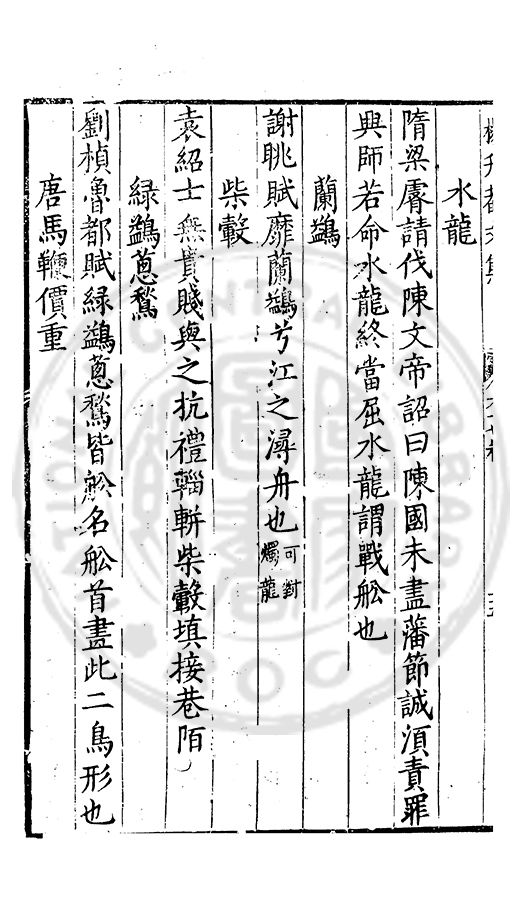 水龍
隋梁睿請伐陳文帝詔曰陳國未盡藩節誠湏責罪
興師若命水龍終當屈水龍謂戰舩也
蘭鷁
謝眺賦靡蘭鷁兮江之潯舟也可對燭龍
柴轂
袁紹士無貴賤與之抗禮輜軿柴轂填接巷陌
緑鷁蔥鶖
劉楨魯都賦緑鷁蔥鶖皆舩名舩首畫此二鳥形也
唐馬鞭價重